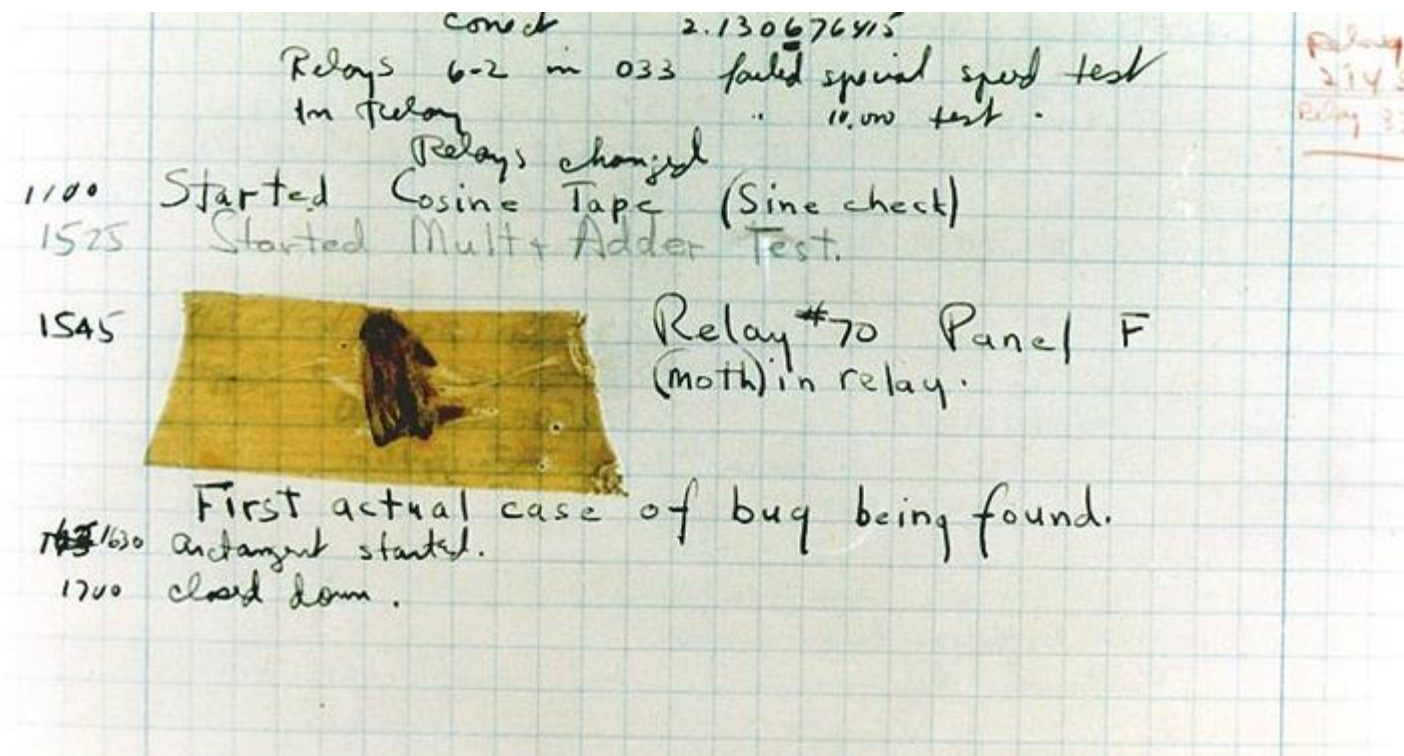 correct 2.130676415
Relays 6-2 in 033 failed special speed test
In Relay " 10,000 test .
Relays changed
1100 Started Cosine Tape (Sine check)
1525 Started Mult + Adder Test.
1545 Relay #70 Panel F
(moth) in relay.
First actual case of bug being found.
1630 arctangent started.
1700 closed down.
Relay
214
Relay 33